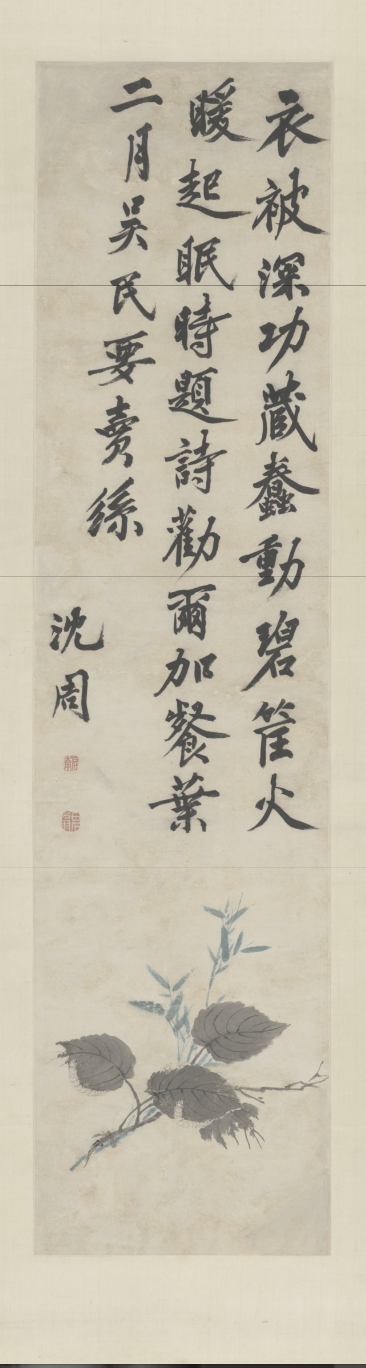 衣被深功藏蠢動碧筐火
暖起眠時題詩勸爾加餐葉
二月吴民要賣絲
沈周